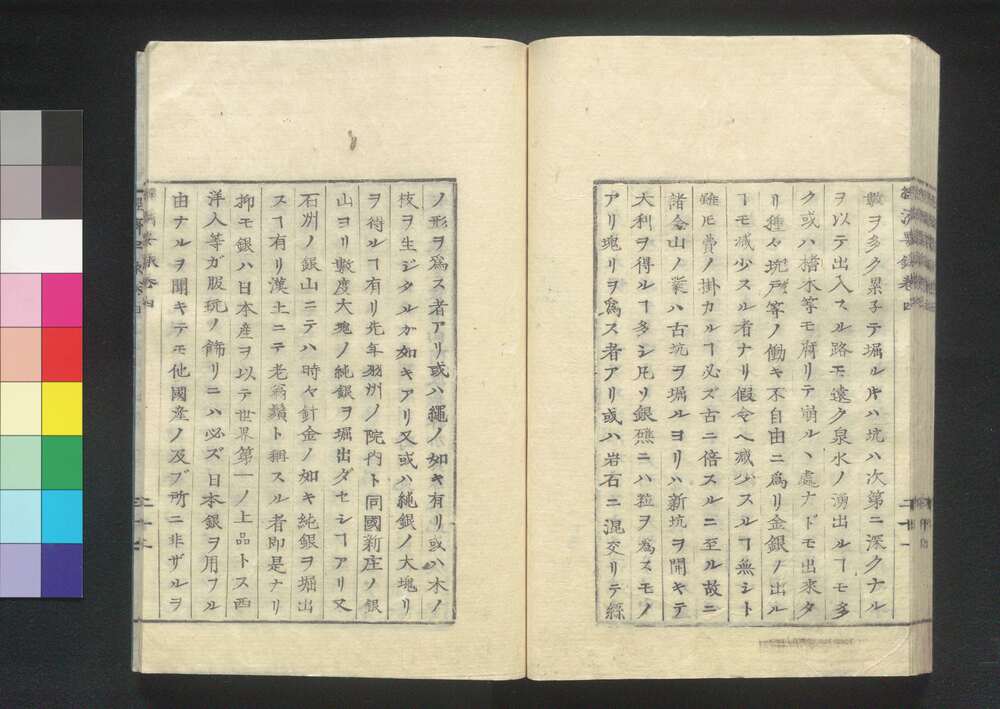 數ヲ多ク累子テ堀ルキハ坑ハ次第ニ深クナル
ヲ以テ出入スル路モ遠ク泉水ノ湧出ルヿモ多
ク或ハ橧木等モ腐リテ崩ルヽ處ナドモ出來タ
リ種々坑戸等ノ働キ不自由ニ爲リ金銀ノ出ル
ヿモ減少スル者ナリ假令ヘ减少スルヿ無シト
雖𪜈費ノ掛カルヿ必ズ古ニ倍スルニ至ル故ニ
諸金山ノ業ハ古坑ヲ堀ルヨリハ新坑ヲ開キテ
大利ヲ得ルヿ多シ凡リ銀礁ニハ粒ヲ爲スモノ
アリ塊リヲ爲ス者アリ或ハ岩石ニ混交リテ綵
ノ形ヲ爲ス者アリ或ハ繩ノ如キ有リ或ハ木ノ
枝ヲ生ジタルガ如キアリ又或ハ純銀ノ大塊リ
ヲ得ルヿ有リ先年羽州ノ院内ト同國新庄ノ銀
山ヨリ數度大塊ノ純銀ヲ堀出ダセシヿアリ又
石州ノ銀山ニテハ時々針金ノ如キ純銀ヲ堀出
スヿ有リ漢土ニテ老翁鬚ト稱スル者即是ナリ
抑モ銀ハ日本産ヲ以テ世界第一ノ上品トス西
洋人等ガ服玩ノ飾リニハ必ズ日本銀ヲ用フル
由ナルヲ聞キテモ他國産ノ及ブ所ニ非ザルヲ
經濟要錄卷四